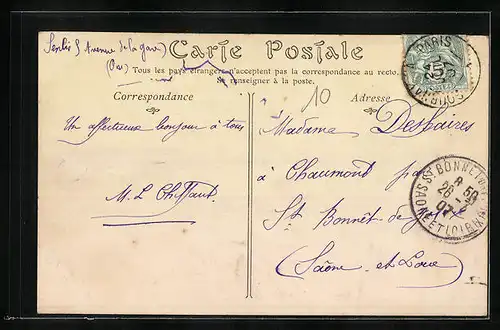 Senlis 5 Avenue de la gare
Carte Postale
(Oise)
Tous les pays étrangers n'acceptent pas la correspondance au recto.
Se renseigner à la poste.
Correspondance
Adresse
10
Un affectueux bonjour à tous
M. L.
Madame Desbaires
à Chaumont par
St Bonnet-de-Joux
(Saône-et-Loire)
PARIS
ST BONNET
SAONE ET LOIRE